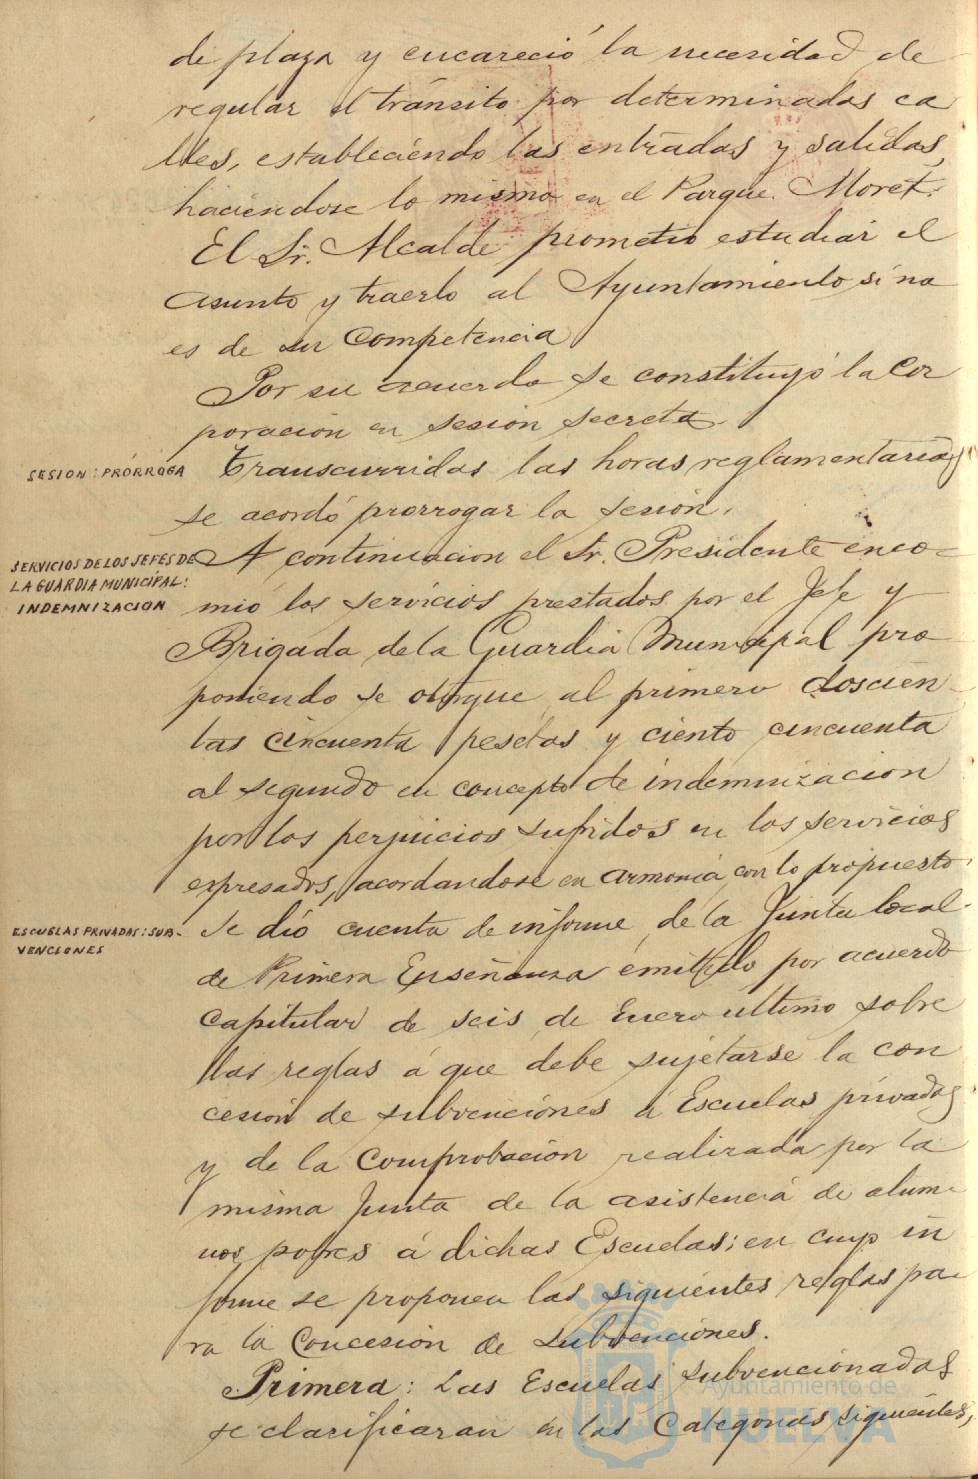 de plaza y encareció la necesidad de
regular el tránsito por determinadas ca
lles, estableciendo las entradas y salidas,
haciendose lo mismo en el Parque Moret.
El Sr. Alcalde prometió estudiar el
asunto y traerlo al Ayuntamiento si no
es de su competencia
Por su acuerdo se constituyó la Cor
poracion en sesion secreta.
SESION: PRÓRROGA
Transcurridas las horas reglamentarias
se acordó prorrogar la sesion.
SERVICIOS DE LOS JEFES DE
LA GUARDIA MUNICIPAL:
INDEMNIZACION
A continuacion el Sr. Presidente enco-
mió los servicios prestados por el Jefe y
Brigada de la Guardia Municipal pro
poniendo se otorgue al primero doscien-
tas cincuenta pesetas y ciento cincuenta
al segundo en concepto de indemnizacion
por los perjuicios sufridos en los servicios
expresados, acordandose en armonia con lo propuesto.
ESCUELAS PRIVADAS: SUB-
VENCIONES
Se dió cuenta de informe de la Junta local
de Primera Enseñanza emitido por acuerdo
capitular de seis de Enero ultimo sobre
las reglas á que debe sujetarse la con
cesion de subvenciones á Escuelas privadas
y de la comprobacion realizada por la
misma Junta de la asistencia de alum-
nos pobres á dichas Escuelas; en cuyo in
forme se proponen las siguientes reglas pa-
ra la concesion de subvenciones.
Primera: Las Escuelas subvencionadas
se clasificaran en las Categorias siguientes,
Ayuntamiento de
HUELVA